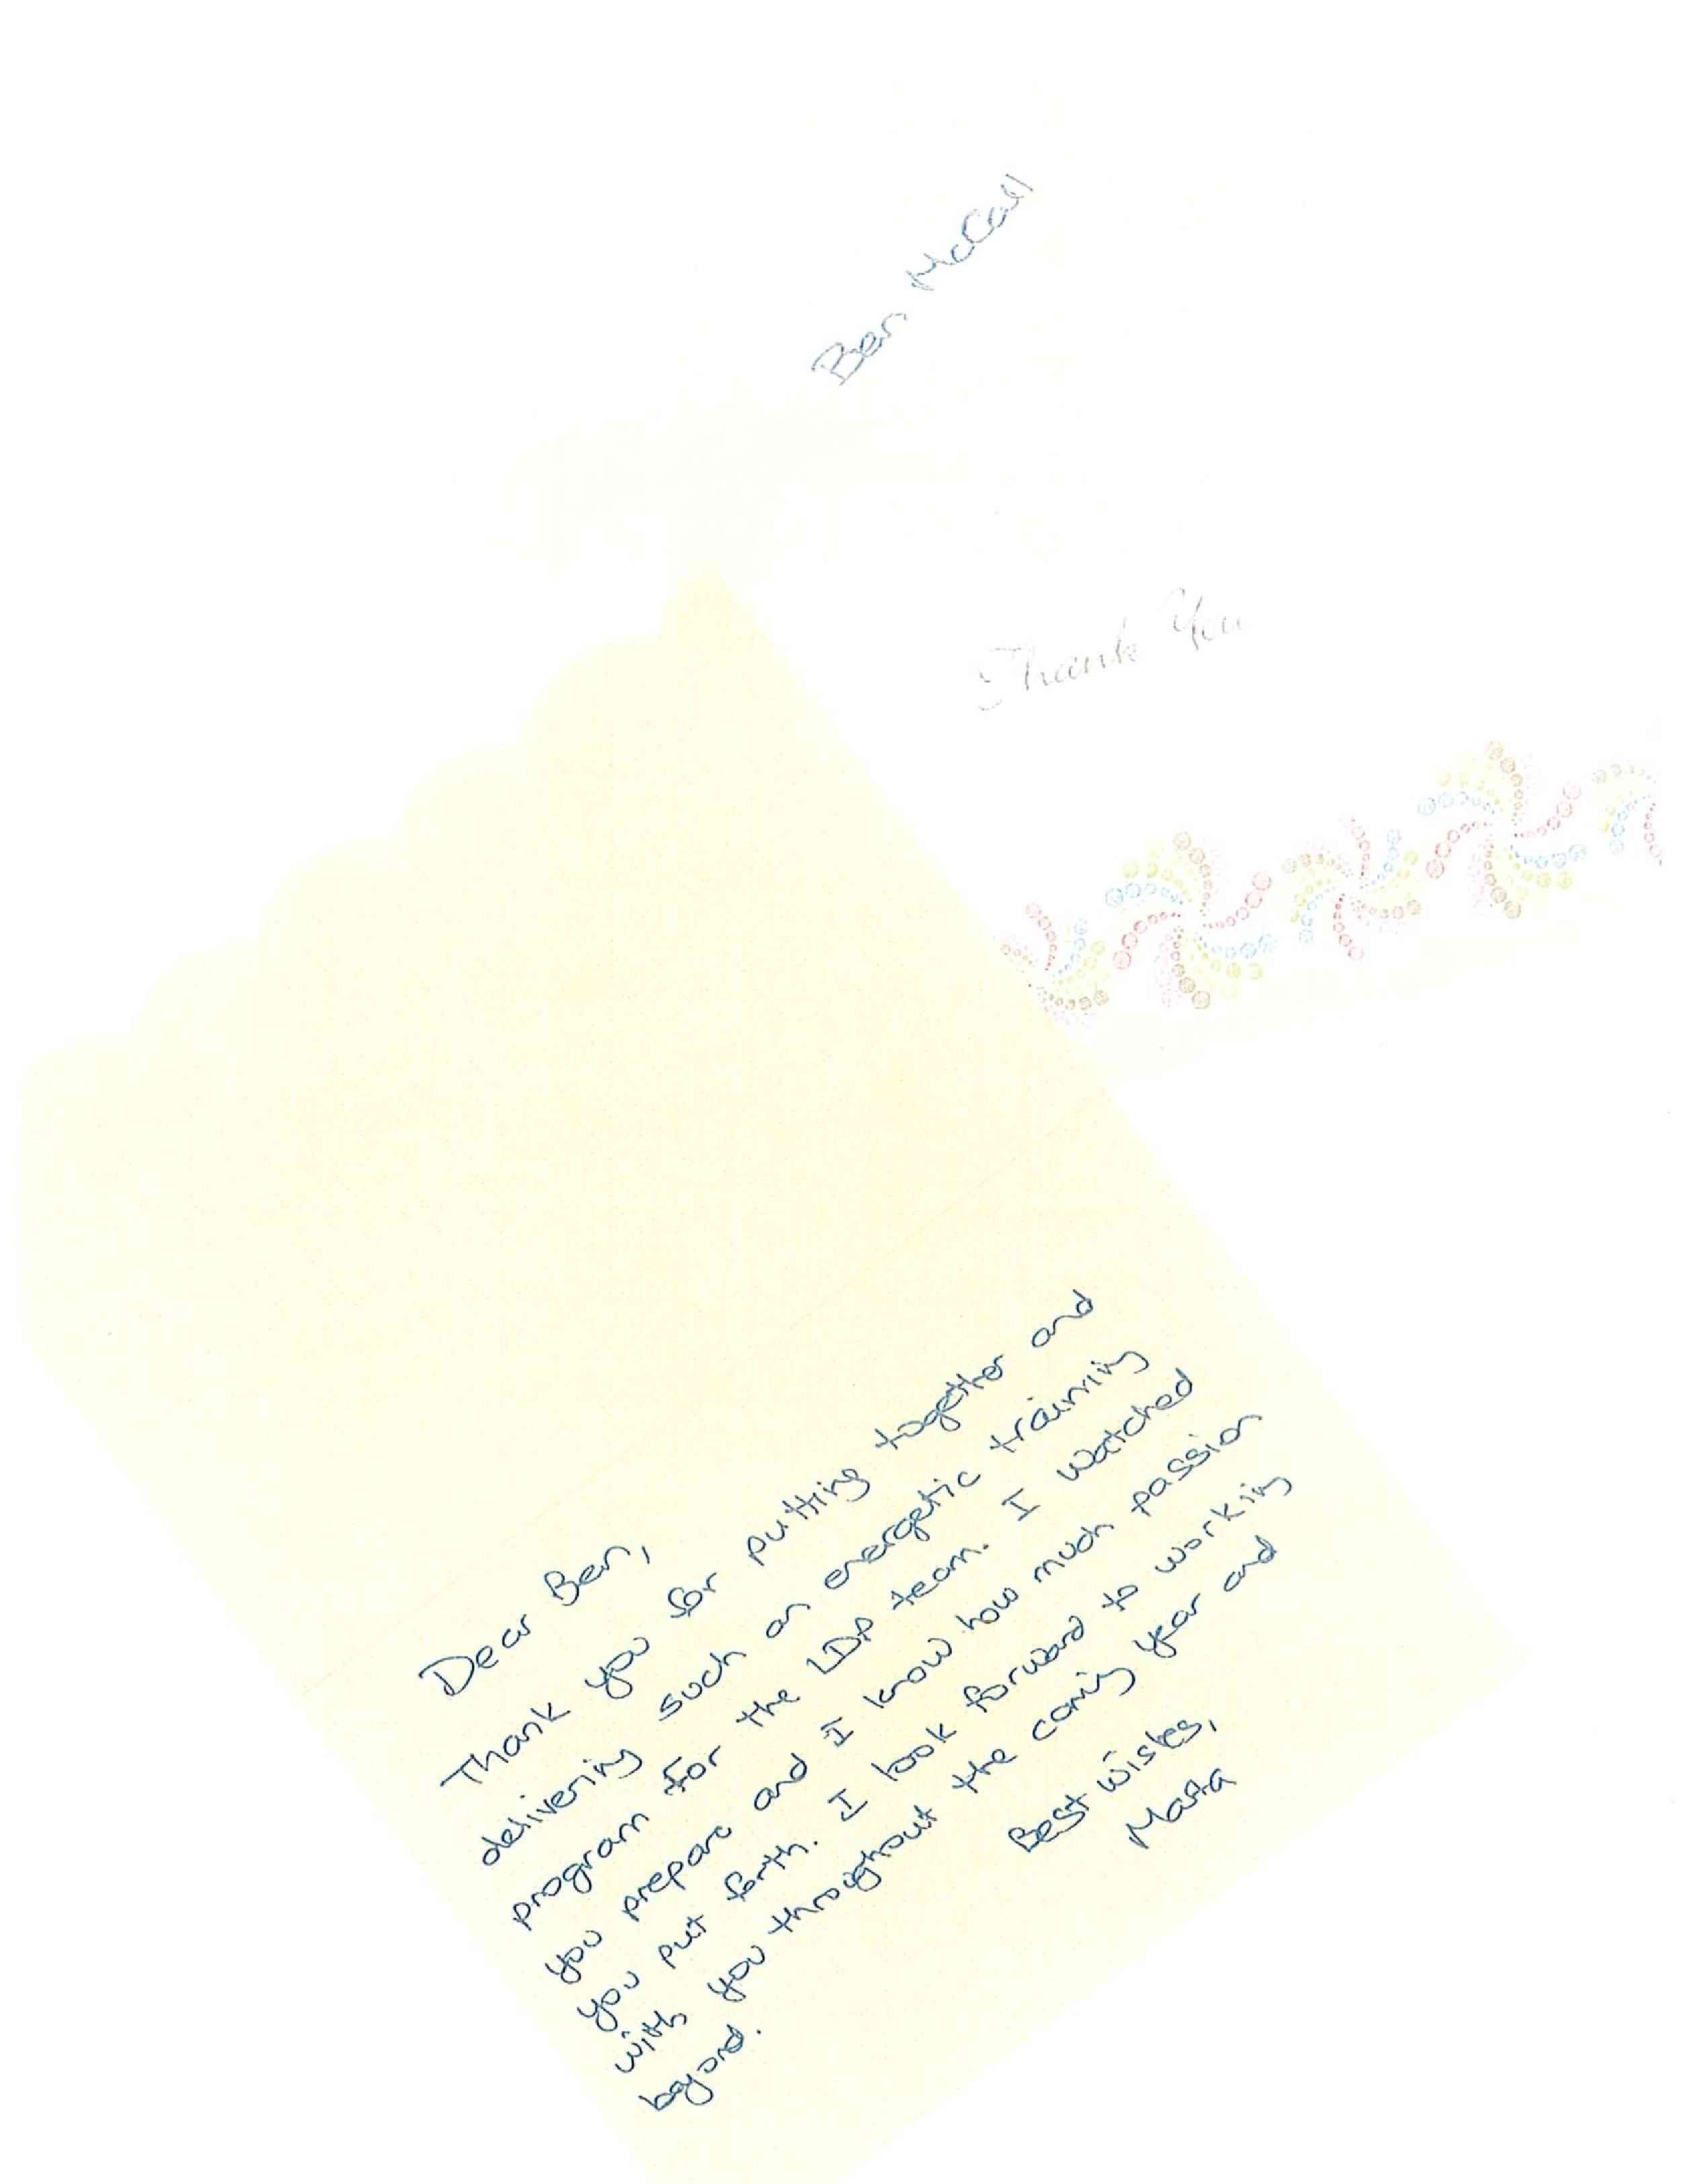 Ben McCall
Thank You
Dear Ben,
Thank you for putting together and
delivering such an energetic training
program for the LDP team. I watched
you prepare and I know how much passion
you put forth. I look forward to working
with you throughout the coming year and
beyond.
Best wishes,